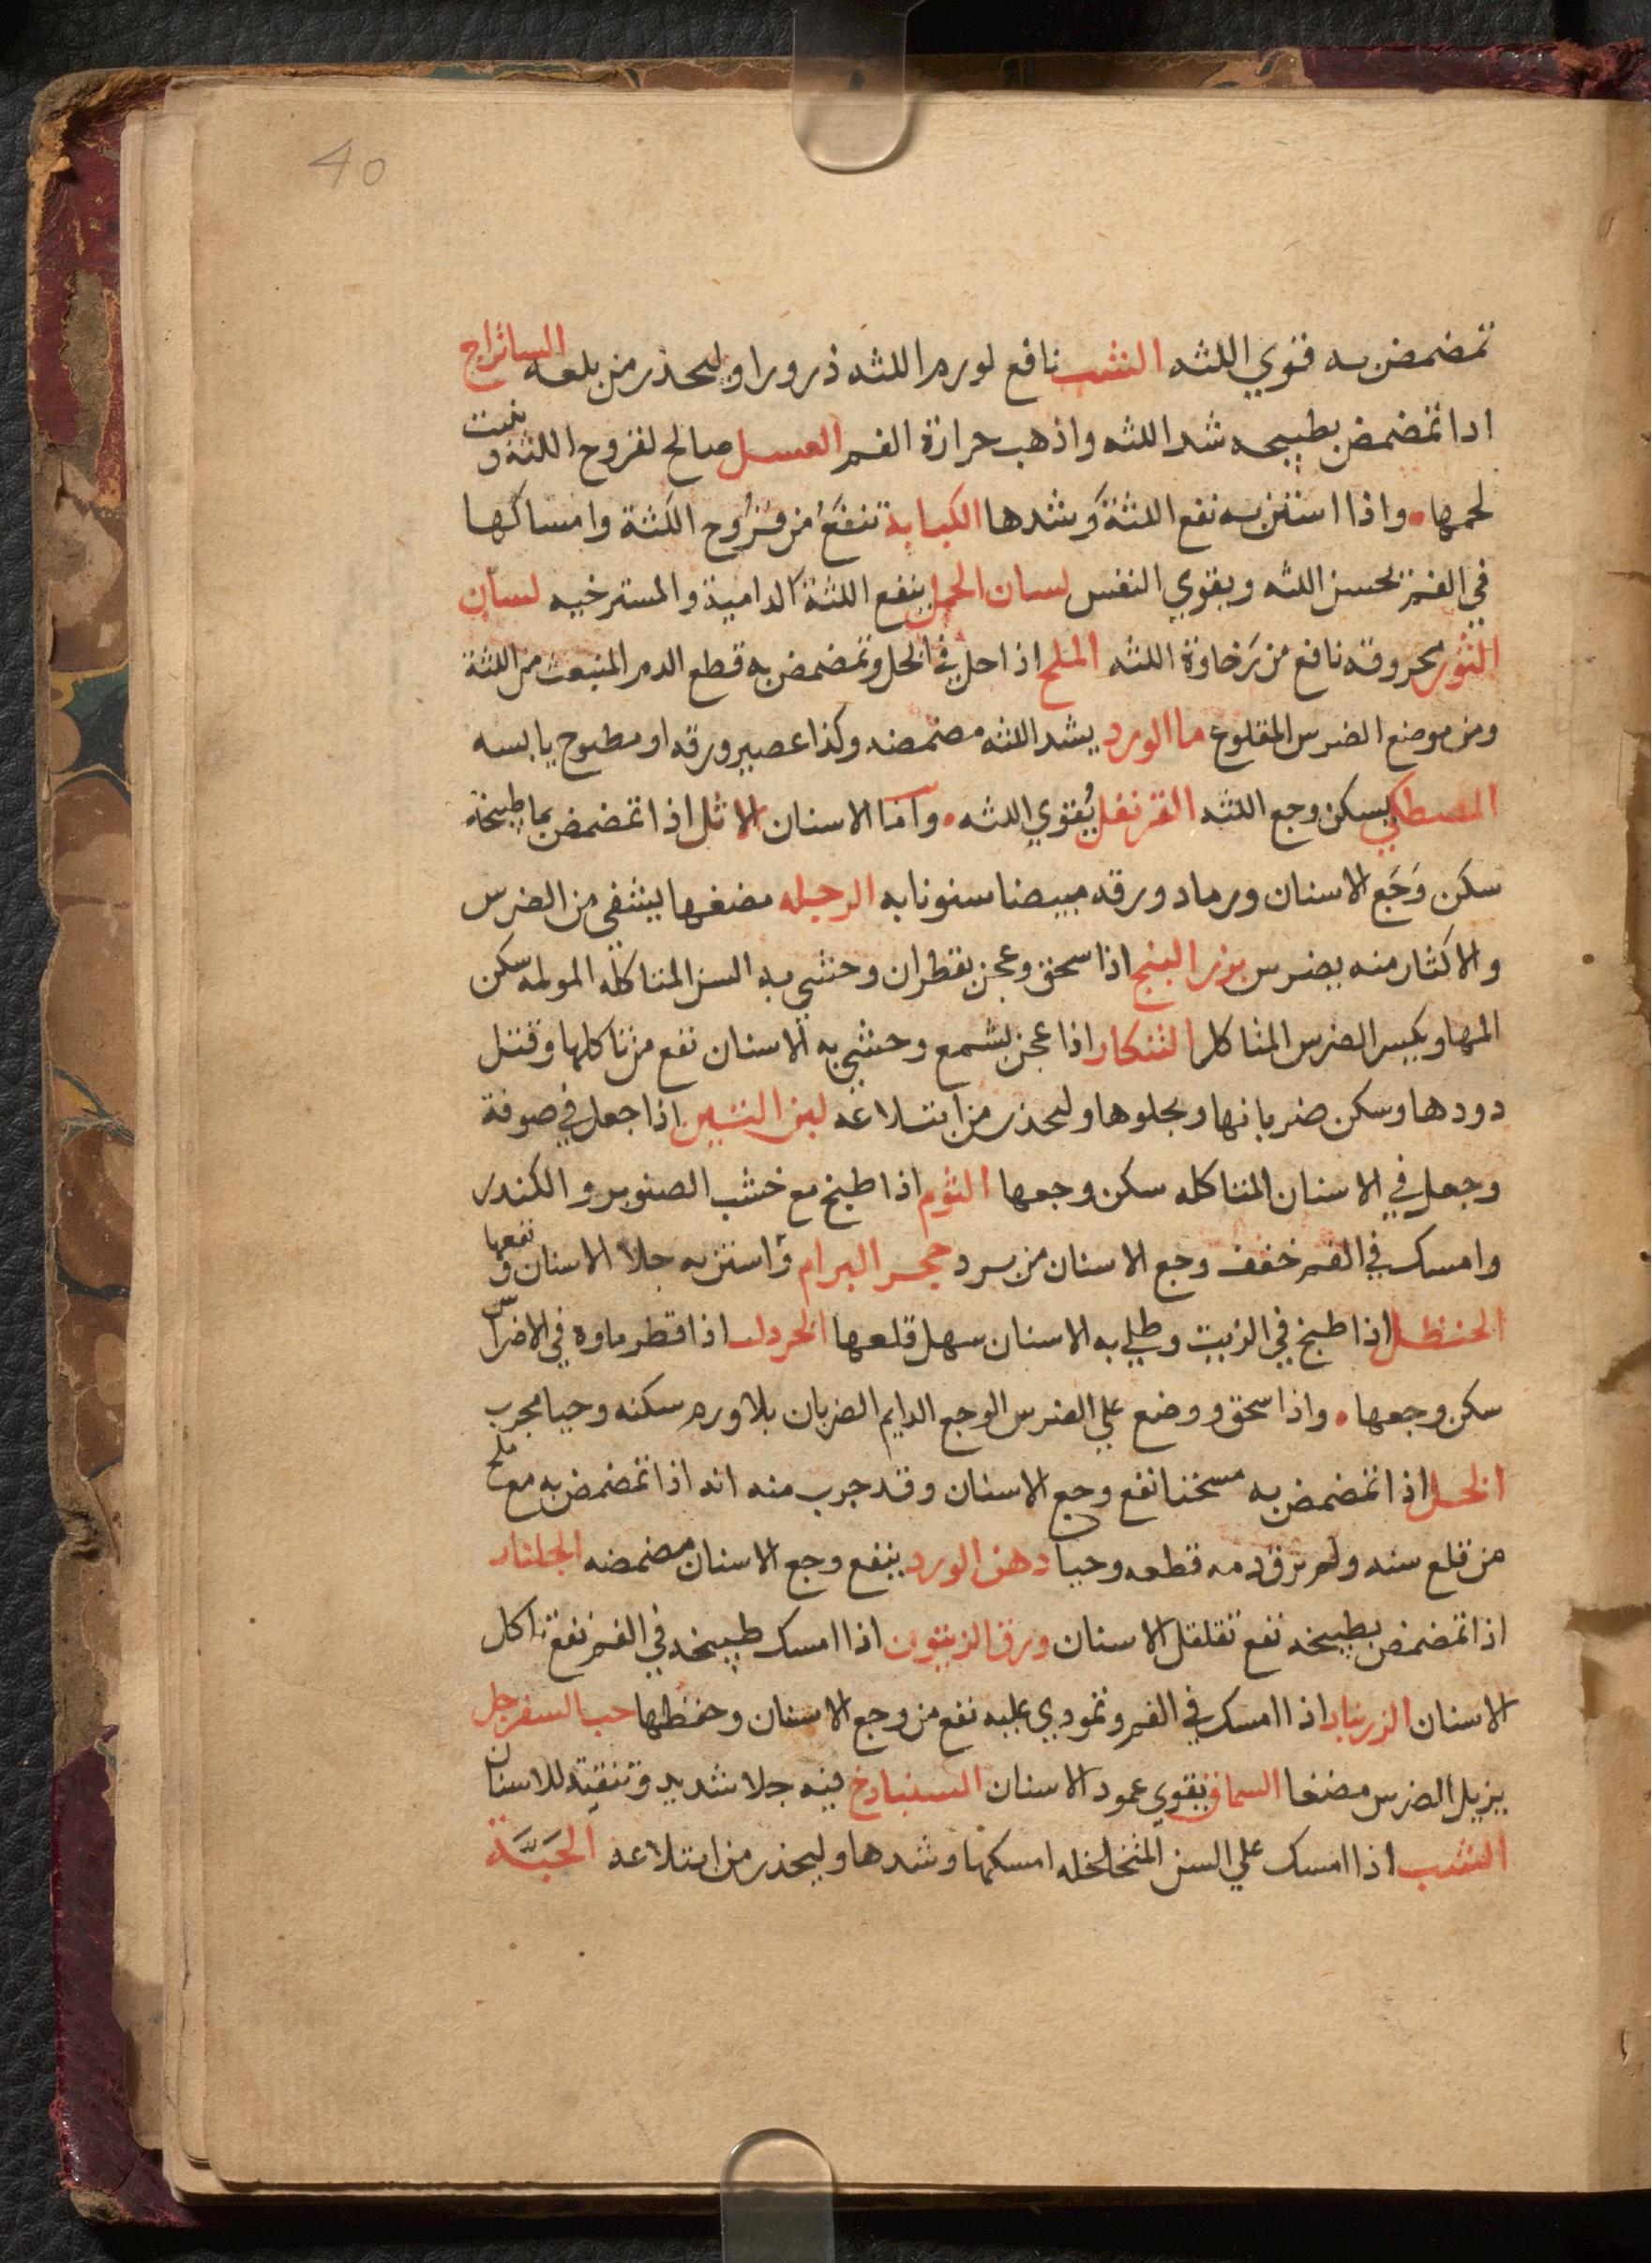 40
تمضمض به قوي اللثه الشب نافع لورم اللثه ذرورا وليحذر من بلعه الساذج
اذا تمضمض بطبيخه شد اللثه واذهب حرارة الفم العسل صالح لقروح اللثة وينبت
لحمها واذا استن به نفع اللثة وشدها الكبابة تنفع من قروح اللثة وامساكها
في الفم تحسن اللثه ويقوي النفس لسان الحمل ينفع اللثة الدامية والمسترخيه لسان
الثور محروقه نافع من رخاوة اللثه الملح اذا حل في الخل وتمضمض به قطع الدم المنبعث من اللثة
ومن موضع الضرس المقلوع ما الورد يشد اللثه مضمضه وكذا عصير ورقه او مطبوخ يابسه
المصطكي يسكن وجع اللثه القرنفل يقوي اللثه واما الاسنان الاثل اذا تمضمض بما طبيخه
سكن وجع الاسنان ورماد ورقه مبيضا سنونا به الرجله مضغها يشفي من الضرس
والاكثار منه يضرس بزر البنج اذا سحق وعجن بقطران وحشي به السن المتاكله المولمه سكن
المها ويكسر الضرس المتاكل التنكار اذا عجن بشمع وحشي به الاسنان نفع من تاكلها وقتل
دودها وسكن ضربانها ويجلوها وليحذر من ابتلاعه لبن التين اذا جعل في صوفة
وجعل في الاسنان المتاكله سكن وجعها الثوم اذا طبخ مع خشب الصنوبر والكندر
وامسك في الفم خفف وجع الاسنان من برد حجر البرام واستن به جلا الاسنان ونفعها
الحنظل اذا طبخ في الزيت وطلي به الاسنان سهل قلعها الخردل اذا قطر ماوه في الاضراس
سكن وجعها واذا سحق ووضع علي الضرس الوجع الدايم الضربان بلا ورم سكنه وحيا مجرب
الخل اذا تمضمض به مسخنا نفع وجع الاسنان وقد جرب منه انه اذا تمضمض به مع ملح
من قلع سنه ولم يرق دمه قطعه وحيا دهن الورد ينفع وجع الاسنان مضمضه الجلنار
اذا تمضمض بطبيخه نفع تقلقل الاسنان ورق الزيتون اذا امسك طبيخه في الفم نفع تاكل
الاسنان الزرنباد اذا امسك في الفم وتمودي عليه نفع من وجع الاسنان وحفظها حب السفرجل
يزيل الضرس مضغا السماق يقوي عمود الاسنان السنباذج فيه جلا شديد وتنقية للاسنان
الشب اذا امسك علي السن المتخلخله امسكها وشدها وليحذر من ابتلاعه الحبة